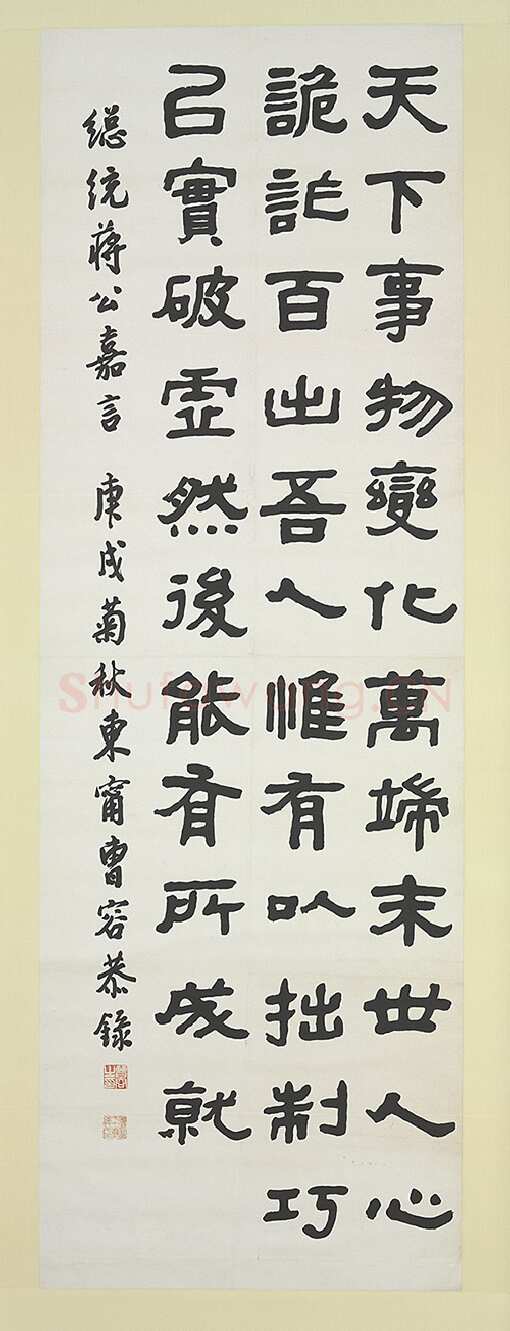 天下事物變化萬端末世人心
詭詐百出吾人惟有以拙制巧
㠯實破虛然後能有所成就
總統蔣公嘉言 庚戌菊秋東甯曹容恭錄
Shufawang.CN